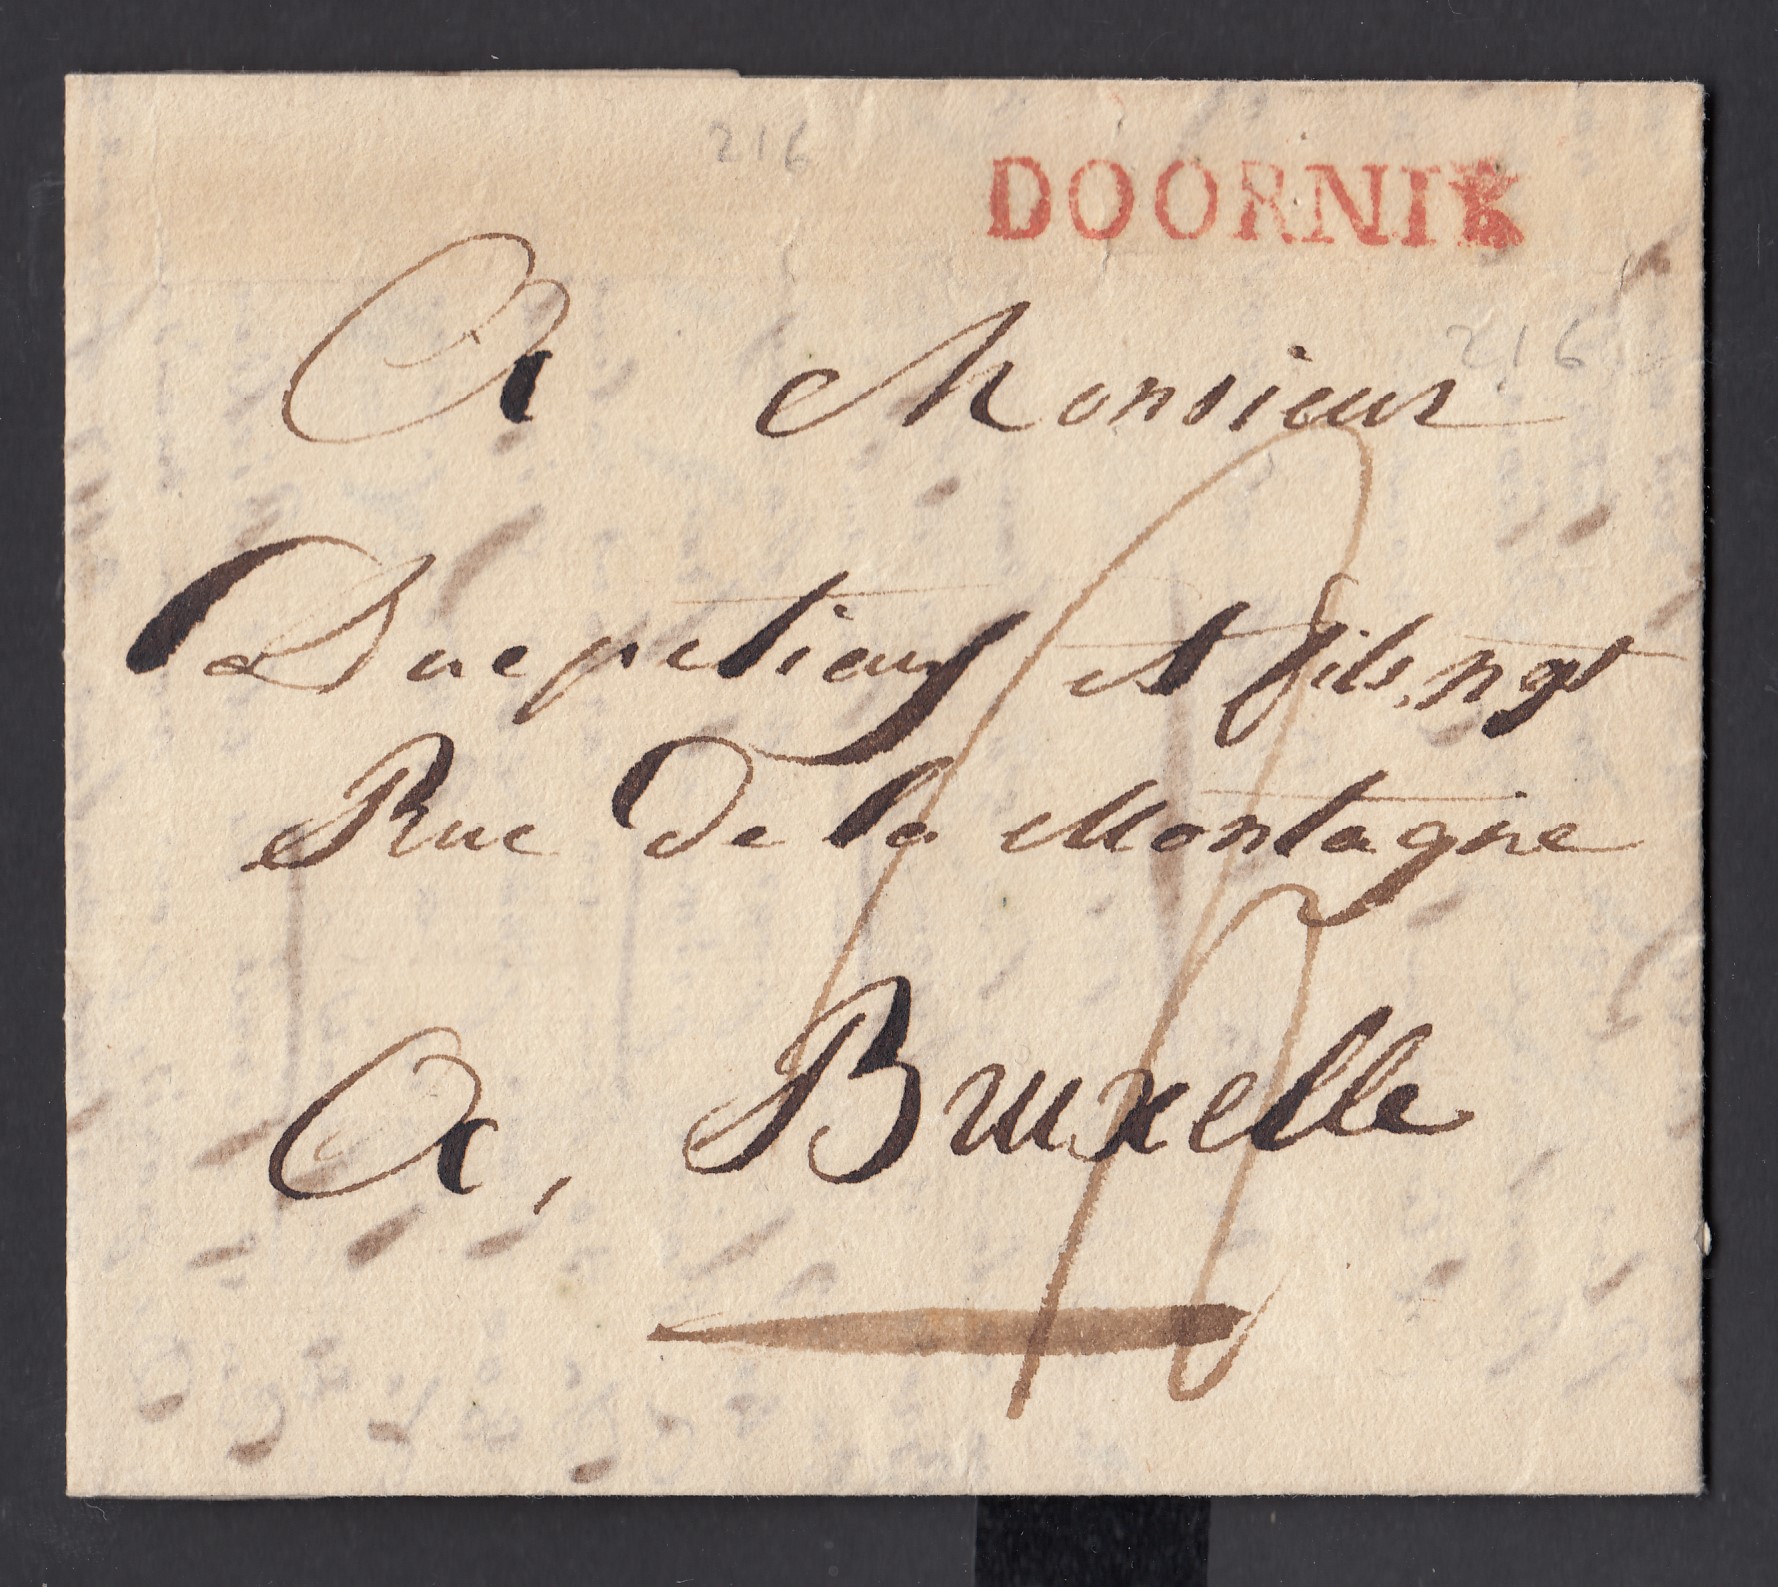 216
DOORNIK
A Monsieur
216
Ducpetiaux et fils, ngt
Rue de la Montagne
A, Bruxelle